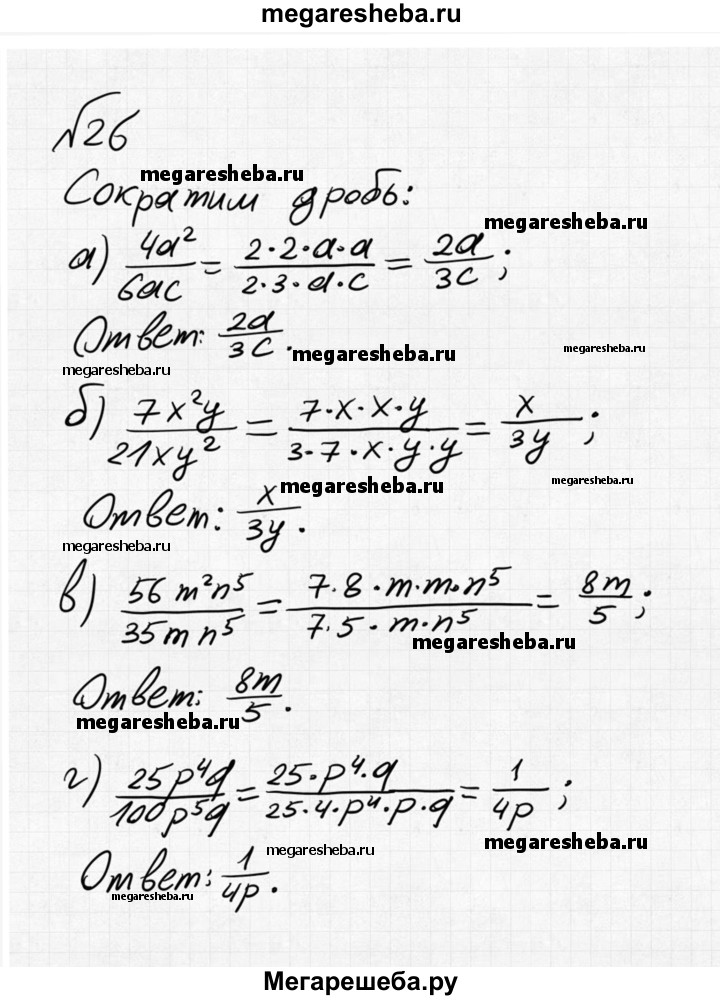 megaresheba.ru
№26
megaresheba.ru
Сократим дробь:
megaresheba.ru
а) 4a²/6ac = 2·2·a·a/2·3·a·c = 2a/3c;
Ответ: 2a/3c.
megaresheba.ru
megaresheba.ru
megaresheba.ru
б) 7x²y/21xy² = 7·x·x·y/3·7·x·y·y = x/3y;
megaresheba.ru
megaresheba.ru
Ответ: x/3y.
megaresheba.ru
в) 56m²n⁵/35mn⁵ = 7·8·m·m·n⁵/7·5·m·n⁵ = 8m/5;
megaresheba.ru
Ответ: 8m/5.
megaresheba.ru
г) 25p⁴q/100p⁵q = 25·p⁴·q/25·4·p⁴·p·q = 1/4p;
megaresheba.ru
megaresheba.ru
Ответ: 1/4p.
megaresheba.ru
Мегарешеба.ру